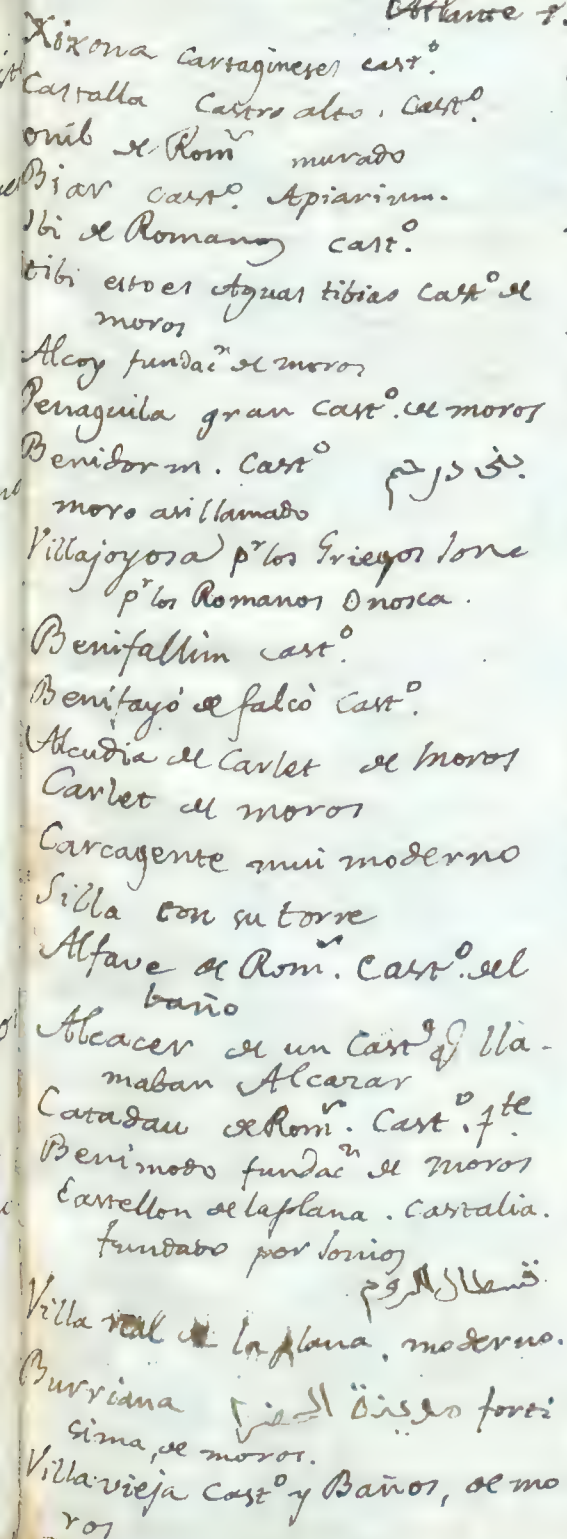 Atlante
Xixona Cartagineses cast.º
Castalla Castro alto. Cast.º
onil de Rom.s murado
Biar cast.º Apiarium.
Ibi de Romanos cast.º
tibi esto es Aguas tibias Cast.º de
moros
Alcoy fundac.n de moros
Penaguila gran Cast.º de moros
Benidorm. Cast.º بني درهم
moro asi llamado
Villajoyosa p.r los Griegos Ione
p.r los Romanos Onosca.
Benifallim cast.º
Benifayó de falcò Cast.º
Alcudia de Carlet de moros
Carlet de moros
Carcagente mui moderno
Silla con su torre
Alfave de Rom.s. Cast.º del
baño
Alcacer de un Cast.º q lla-
maban Alcazar
Catadau de Rom.s. Cast.º fte
Benimodo fundac.n de moros
Castellon de la plana. Castalia.
fundado por Ionios
قسطال الروم
Villa real de la plana, moderno.
Burriana مدينة الخضرا forti
sima, de moros.
Villavieja Cast.º y Baños, de mo
ros